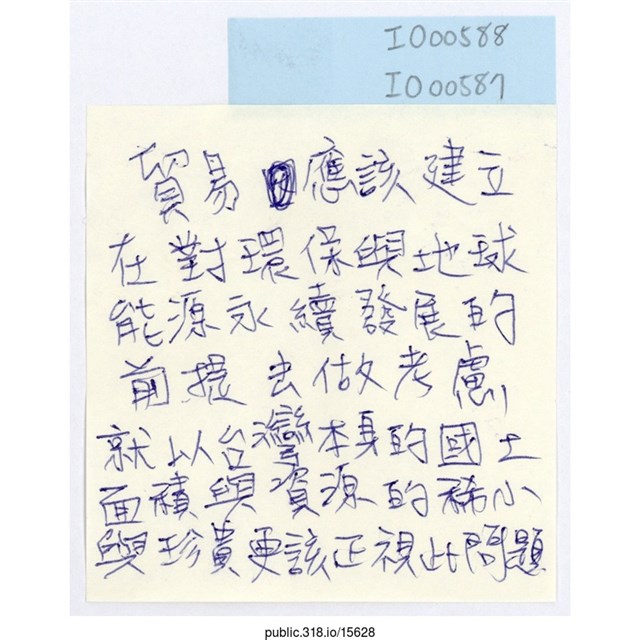 IO00588
IO00587
貿易應該建立
在對環保與地球
能源永續發展的
前提去做考慮
就以台灣本身的國土
面積與資源的稀小
與珍貴更該正視此問題
public.318.io/15628